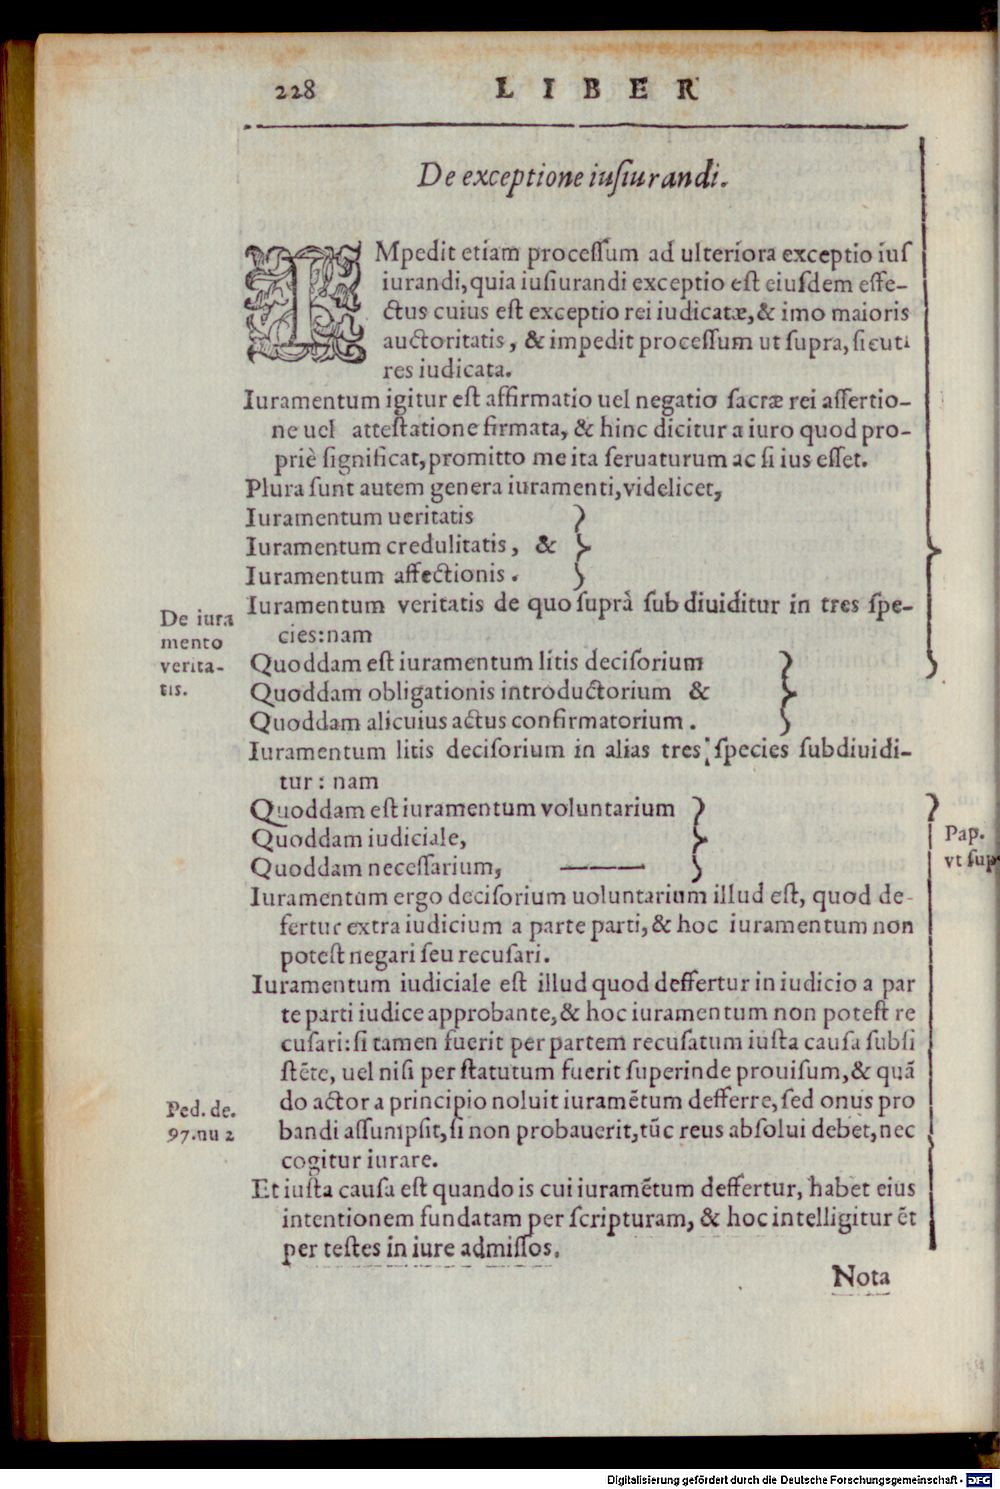 228 LIBER
De exceptione iusiurandi.
IMpedit etiam processum ad ulteriora exceptio ius
iurandi, quia iusiurandi exceptio est eiusdem effe-
ctus cuius est exceptio rei iudicatæ, & imo maioris
auctoritatis, & impedit processum ut supra, sicuti
res iudicata.
Iuramentum igitur est affirmatio uel negatio sacræ rei assertio-
ne uel attestatione firmata, & hinc dicitur a iuro quod pro-
priè significat, promitto me ita seruaturum ac si ius esset.
Plura sunt autem genera iuramenti, videlicet,
Iuramentum ueritatis
Iuramentum credulitatis, &
Iuramentum affectionis.
Iuramentum veritatis de quo suprà subdiuiditur in tres spe-
cies: nam
De iura
mento
verita-
tis.
Quoddam est iuramentum litis decisorium
Quoddam obligationis introductorium &
Quoddam alicuius actus confirmatorium.
Iuramentum litis decisorium in alias tres species subdiuidi-
tur: nam
Quoddam est iuramentum voluntarium
Quoddam iudiciale,
Quoddam necessarium,
Pap.
vt sup
Iuramentum ergo decisorium uoluntarium illud est, quod de-
fertur extra iudicium a parte parti, & hoc iuramentum non
potest negari seu recusari.
Iuramentum iudiciale est illud quod deffertur in iudicio a par
te parti iudice approbante, & hoc iuramentum non potest re
cusari: si tamen fuerit per partem recusatum iusta causa subsi
stēte, uel nisi per statutum fuerit superinde prouisum, & quā
do actor a principio noluit iuramētum defferre, sed onus pro
bandi assumpsit, si non probauerit, tūc reus absolui debet, nec
cogitur iurare.
Ped. de.
97. nu 2
Et iusta causa est quando is cui iuramētum deffertur, habet eius
intentionem fundatam per scripturam, & hoc intelligitur ēt
per testes in iure admissos.
Nota
Digitalisierung gefördert durch die Deutsche Forschungsgemeinschaft - DFG